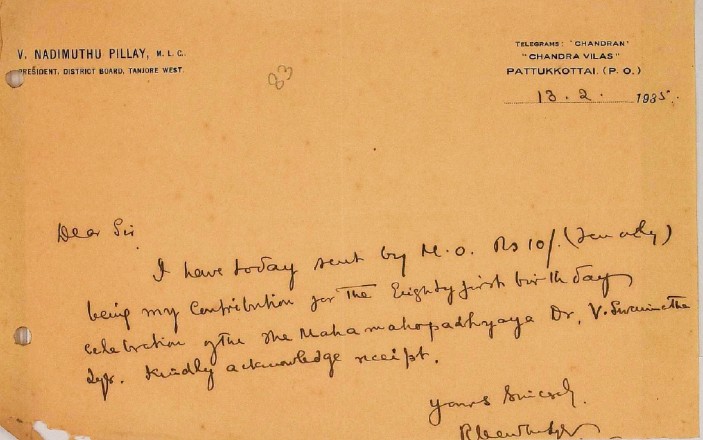 V. NADIMUTHU PILLAY, M. L. C.
PRESIDENT, DISTRICT BOARD, TANJORE WEST.
TELEGRAMS: "CHANDRAN"
"CHANDRA VILAS"
PATTUKKOTTAI. (P. O.)
13. 2. 1935.
83
Dear Sir
I have today sent by M. O. Rs 10/. (Ten only)
being my Contribution for the Eighty first birth day
celebration of the The Mahamahopadhyaya Dr. V. Swaminatha
Iyer. Kindly acknowledge receipt.
Yours